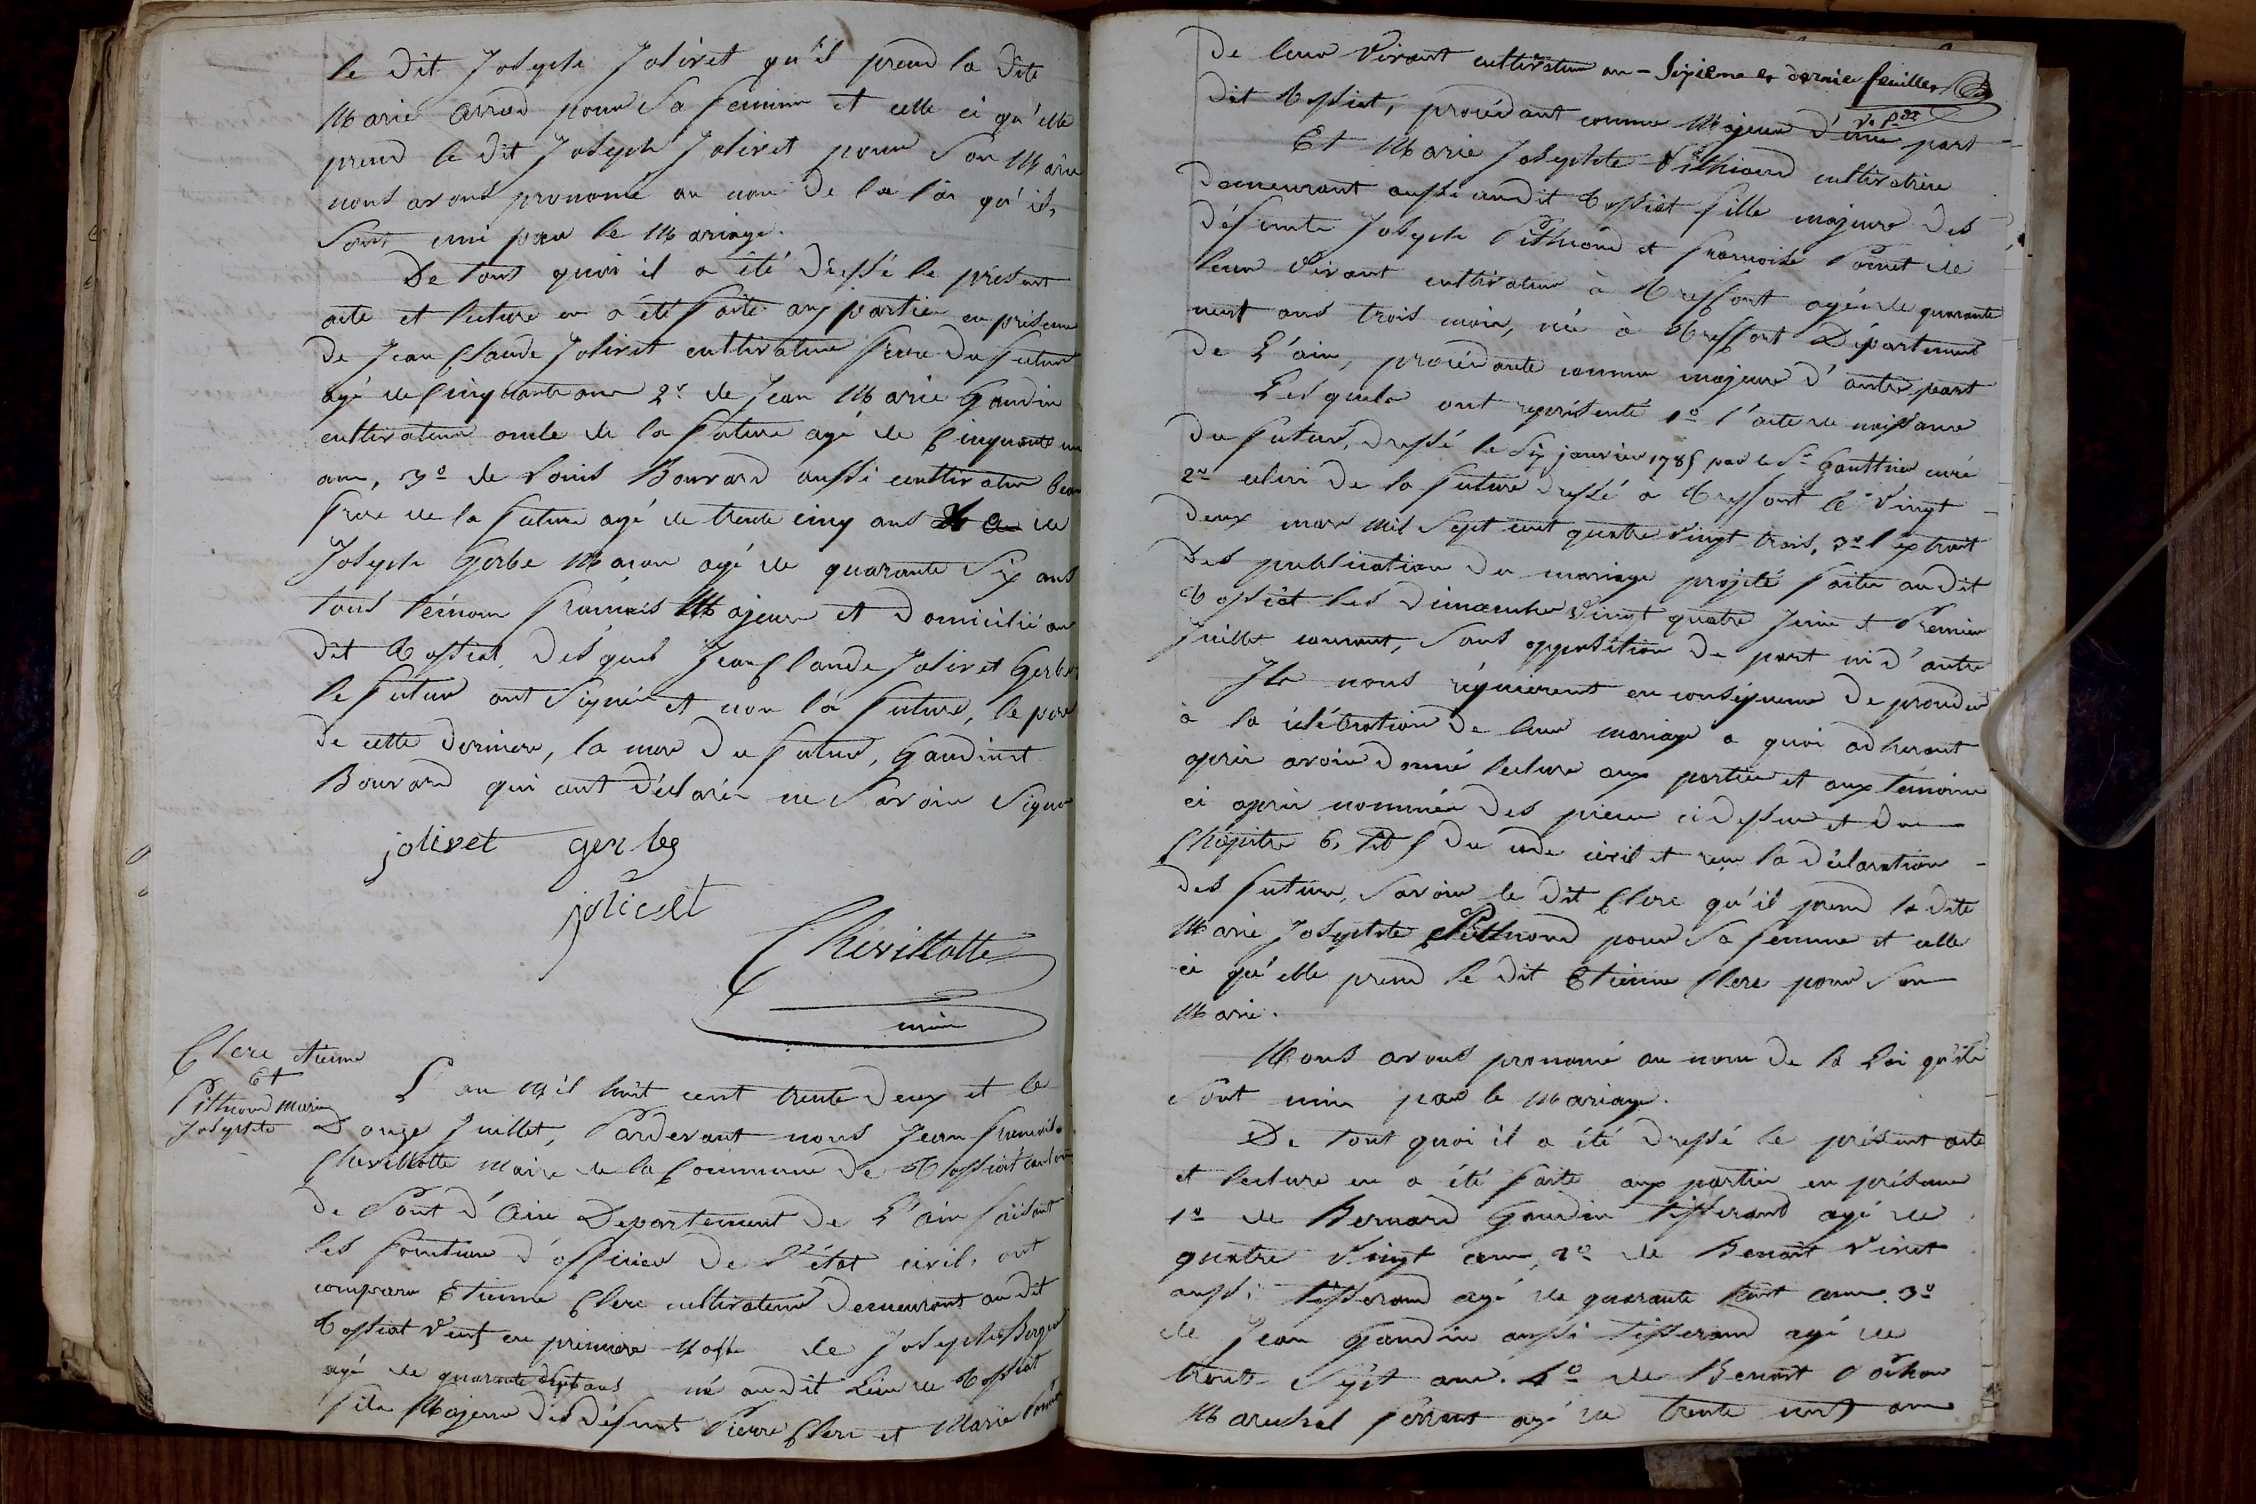 le dit Joseph Jolivet qu'il prend la dite
Marie pour sa femme et celle ci qu'elle
prend le dit Joseph Jolivet pour son Mari
nous avons prononcé au nom de la loi qu'ils
sont uni par le Mariage.
De tout quoi il a été dressé le présent
acte et lecture en a été faite aux parties en présence
de Jean Claude Jolivet cultivateur frere du futur
agé de cinquante ans 2° de Jean Marie Gaudin
cultivateur oncle de la future agé de cinquante un
ans, 3° de Louis Bouvard aussi cultivateur beau
frere de la future agé de trente cinq ans de
Joseph Gerbe Maçon agé de quarante six ans
tous témoins français Majeurs et domicilié au
dit Tossiat, desquels Jean Claude Jolivet Gerbe
le futur ont signé et non la future, le pere
de cette derniere, la mere du futur, Gaudin et
Bouvard qui ont déclarés ne savoir signer
jolivet gerbe
jolivet
Chevillotte
maire
Clerc etienne
Et
Pithioud Marie
Josephte
L'an Mil huit cent trente deux et le
Douze Juillet, Pardevant nous Jean francois
Chevillotte Maire de la Commune de Tossiat canton
de Pont d'Ain Departement de L'ain faisant
les fonctions d'officier de l'état civil, ont
comparu Etienne Clerc cultivateur demeurant au dit
Tossiat veuf en premiere de Josephte
agé de quarante sept ans né audit Lieu de Tossiat
fils Majeur des défunts Pierre Clerc et Marie
De leur vivant cultivateur au - Sixieme et dernier feuillet
dit Tossiat, procédant comme Majeur d'une part
Et Marie Josephte Pithioud cultivatrice
demeurant aussi audit Tossiat fille majeure des
défunts Joseph Pithioud et francoise de
leur vivant cultivateur à Treffort agée de quarante
neuf ans trois mois, née à Treffort Département
de L'ain, procédante comme majeure d'autre part
Lesquels ont représenté 1° l'acte de naissance
du futur, dressé le Six janvier 1785 par le Sr Gauthier curé
2° celui de la future dressé a Treffort le Vingt
deux mars mil sept cent quatre vingt trois, 3° l'extrait
des publication du mariage projeté faites au dit
Tossiat les dimanches vingt quatre Juin et Premier
Juillet courant, sans opposition de part ni d'autre
Ils nous réquierent en conséquence de procéder
à la célébration de leur mariage a quoi adherant
après avoir donné lecture aux parties et aux témoins
ci après nommés des pièces ci dessus et du
Chapitre 6, tit 5 du code civil et reçu la déclaration
des futurs, savoir le dit Clerc qu'il prend la dite
Marie Josephte Pithioud pour sa femme et celle
ci qu'elle prend le dit Etienne Clerc pour son
Mari.
Nous avons prononcé au nom de la Loi qu'ils
sont unis par le Mariage.
De tout quoi il a été dressé le présent acte
et lecture en a été faite aux parties en présence
1° de Bernard Gaudin tisserand agé de
quatre vingt ans, 2° de Benoit Vinet
aussi tisserand agé de quarante huit ans. 3°
de Jean Gaudin aussi tisserand agé de
trente sept ans. 4° de Benoit
Marechal ferrant agé de trente neuf ans